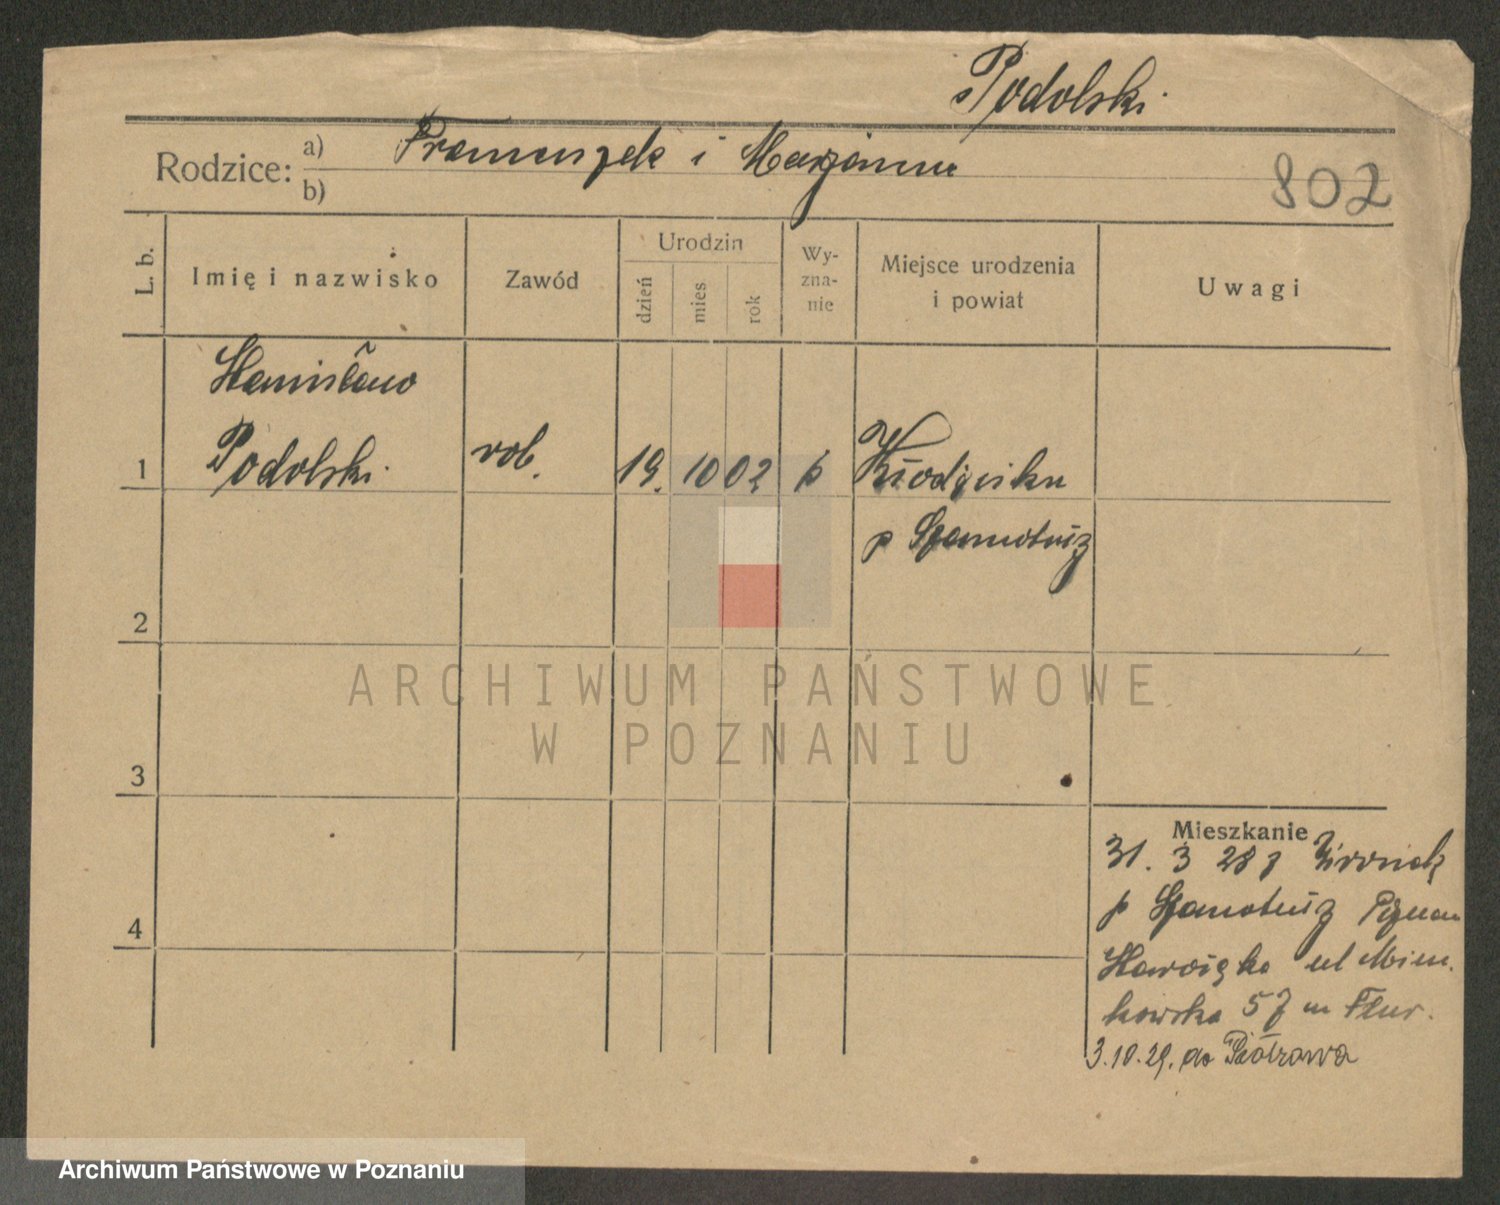 Podolski
Rodzice: a) Franciszek i Marjanna
b)
802
L. b.
Imię i nazwisko
Zawód
Urodzin
dzień
mies
rok
Wy-
zna-
nie
Miejsce urodzenia
i powiat
Uwagi
Stanisław
1 Podolski rob. 19. 10 02
p Szamotuły
2
3
4
ARCHIWUM PAŃSTWOWE
W POZNANIU
Mieszkanie
31. 3 28 z
p Szamotuły
ul
kowska 57 m
3.10.29. do Piotrowa
Archiwum Państwowe w Poznaniu